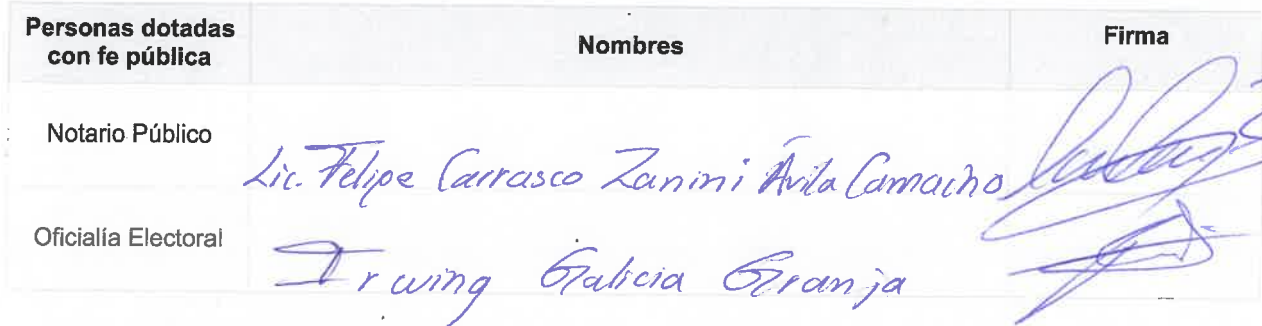 Personas dotadas con fe pública Nombres Firma
Notario Público Lic. Felipe Carrasco Zanini Ávila Camacho
Oficialía Electoral Irwing Galicia Granja